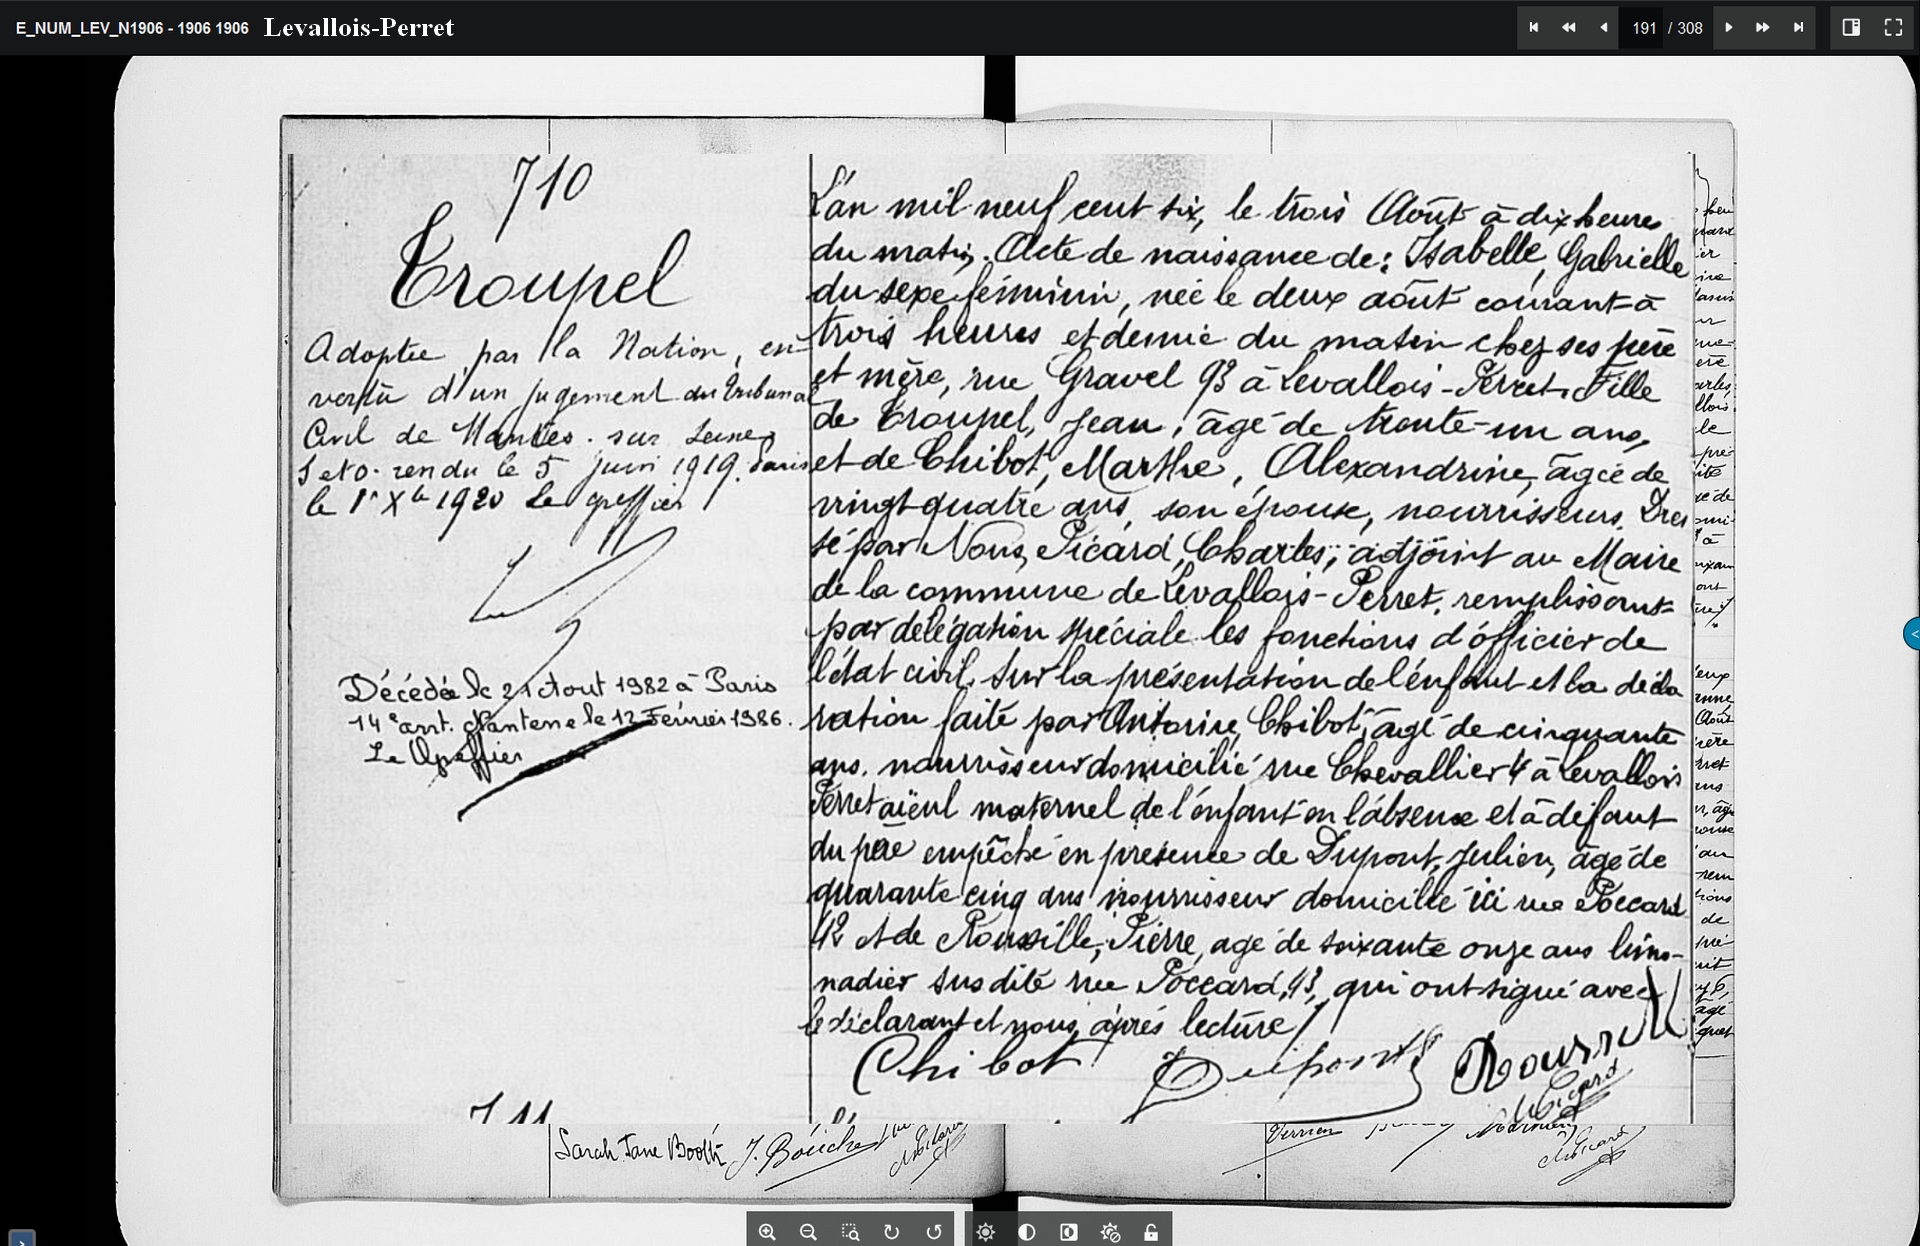 E_NUM_LEV_N1906 - 1906 1906 Levallois-Perret
191 / 308
710
Troupel
Adoptée par la Nation, en
vertu d'un jugement du tribunal
Civil de Mantes-sur-Seine
S et O. rendu le 5 juin 1919. Paris
le 1er Xbre 1920 Le greffier
Décédée le 21 Aout 1982 à Paris
14e arrt. Nanterre le 12 Février 1986.
Le Greffier
L'an mil neuf cent six, le trois Août à dix heures
du matin. Acte de naissance de: Isabelle, Gabrielle
du sexe féminin, née le deux août courant à
trois heures et demie du matin chez ses père
et mère, rue Gravel 93 à Levallois-Perret. Fille
de Troupel, Jean, âgé de trente-un ans,
et de Chibot, Marthe, Alexandrine, âgée de
vingt quatre ans, son épouse, nourrisseurs. Dres
sé par Nous, Picard, Charles, adjoint au Maire
de la commune de Levallois-Perret, remplissant
par délégation spéciale les fonctions d'officier de
l'état civil, sur la présentation de l'enfant et la décla
ration faite par Antoine Chibot, âgé de cinquante
ans, nourrisseur domicilié rue Chevallier 4 à Levallois
Perret aïeul maternel de l'enfant en l'absence et à défaut
du père empêché en présence de Dupont, Julien, âgé de
quarante cinq ans nourrisseur domicilié ici rue Poccard
42 et de Roussille, Pierre, agé de soixante onze ans limo-
nadier susdite rue Poccard, 43, qui ont signé avec
le déclarant et nous, après lecture/
Chibot Dupont
Ch Picard
711
Sarah Jane Booth J. Bouché